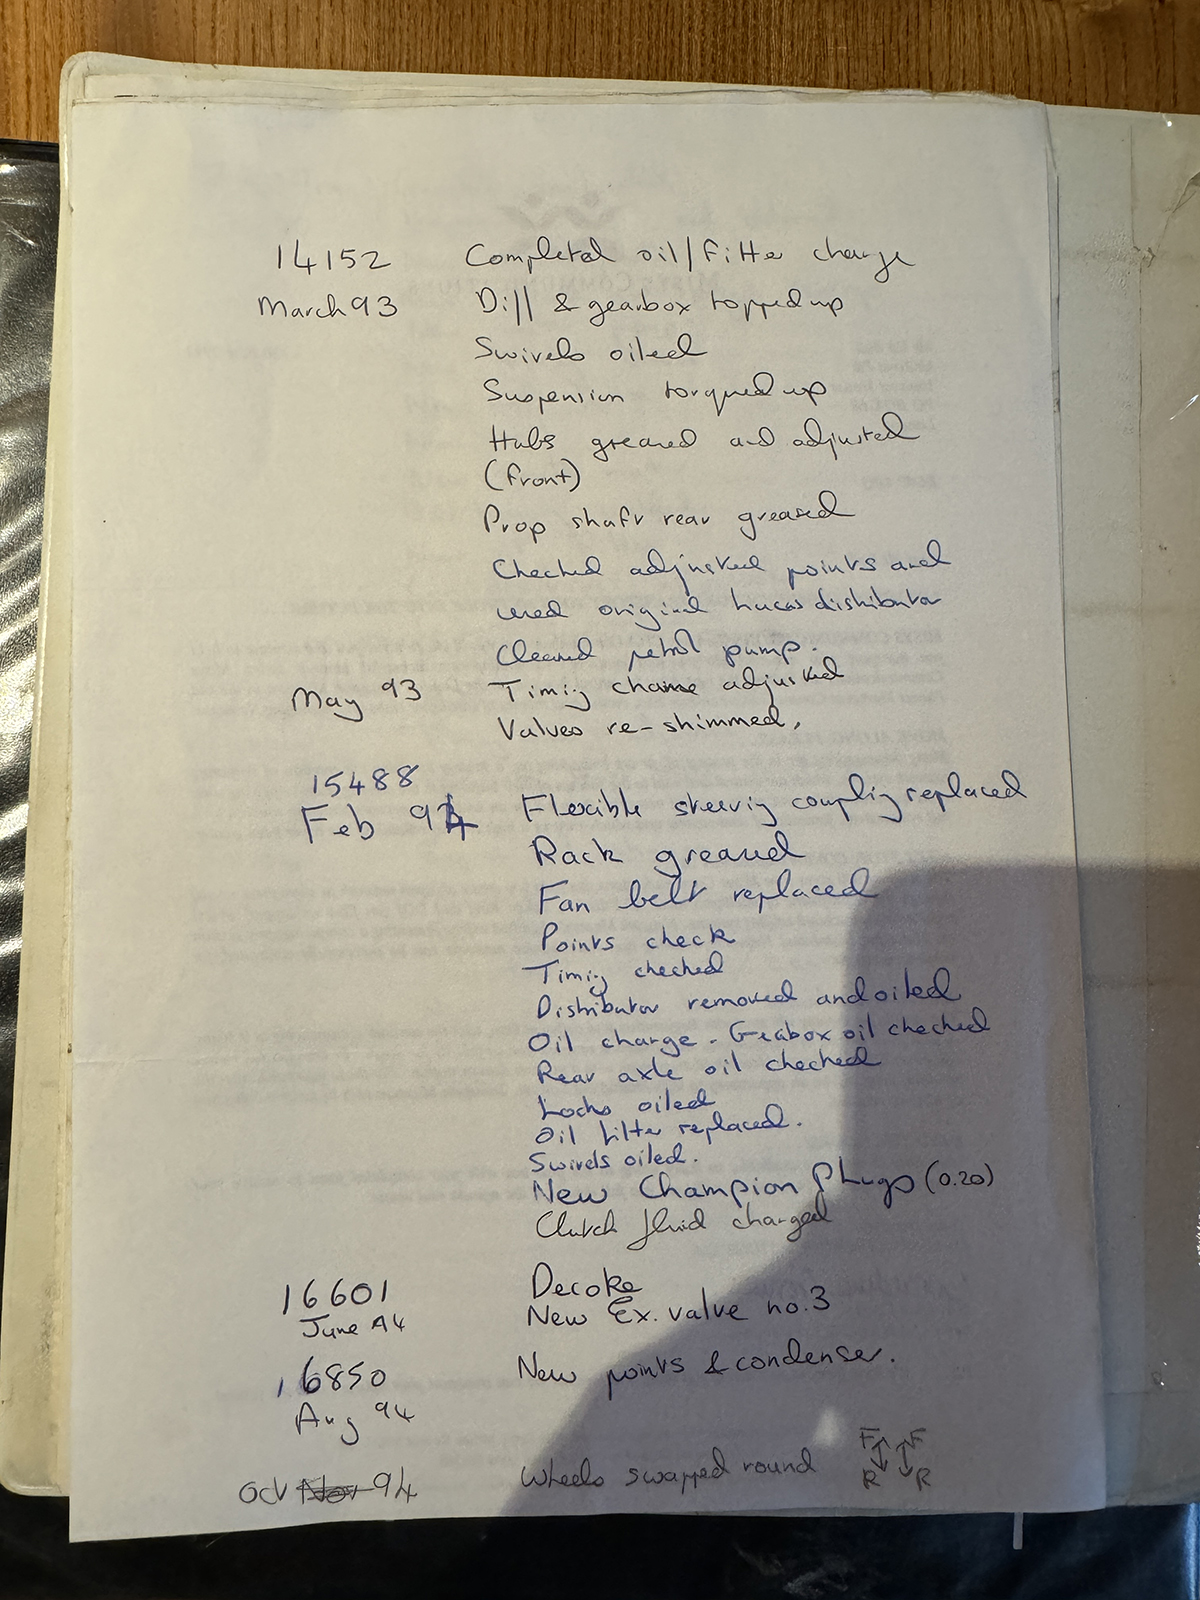 14152 Completed oil/filter change
March 93 Diff & gearbox topped up
Swivels oiled
Suspension torqued up
Hubs greased and adjusted
(front)
Prop shaft rear greased
Checked adjusted points and
used original Lucas distributor
Cleaned petrol pump.
May 93 Timing chaine adjusted
Valves re-shimmed.
15488
Feb 94 Flexible steering coupling replaced
Rack greased
Fan belt replaced
Points check
Timing checked
Distributor removed and oiled
Oil change - Geabox oil checked
Rear axle oil checked
Locks oiled
Oil filter replaced.
Swivels oiled.
New Champion Plugs (0.20)
Clutch fluid changed
16601 Decoke
June 94 New Ex. valve no.3
16850 New points & condenser.
Aug 94
Oct Nov 94 Wheels swapped round F F
R R